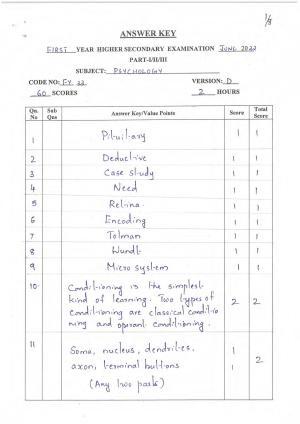 1/8
ANSWER KEY
FIRST YEAR HIGHER SECONDARY EXAMINATION JUNE 2022
PART-I/II/III
SUBJECT: PSYCHOLOGY
CODE NO: FY 22 VERSION: D
60 SCORES 2 HOURS
Qn. No Sub Qns Answer Key/Value Points Score Total Score
1 Pituitary 1 1
2 Deductive 1 1
3 Case study 1 1
4 Need 1 1
5 Retina 1 1
6 Encoding 1 1
7 Tolman 1 1
8 Wundt 1 1
9 Micro system 1 1
10 Conditioning is the simplest
kind of learning. Two types of
conditioning are classical conditio
ning and operant conditioning. 2 2
11 Soma, nucleus, dendrites, 1
axon, terminal buttons 1 2
(Any two parts)